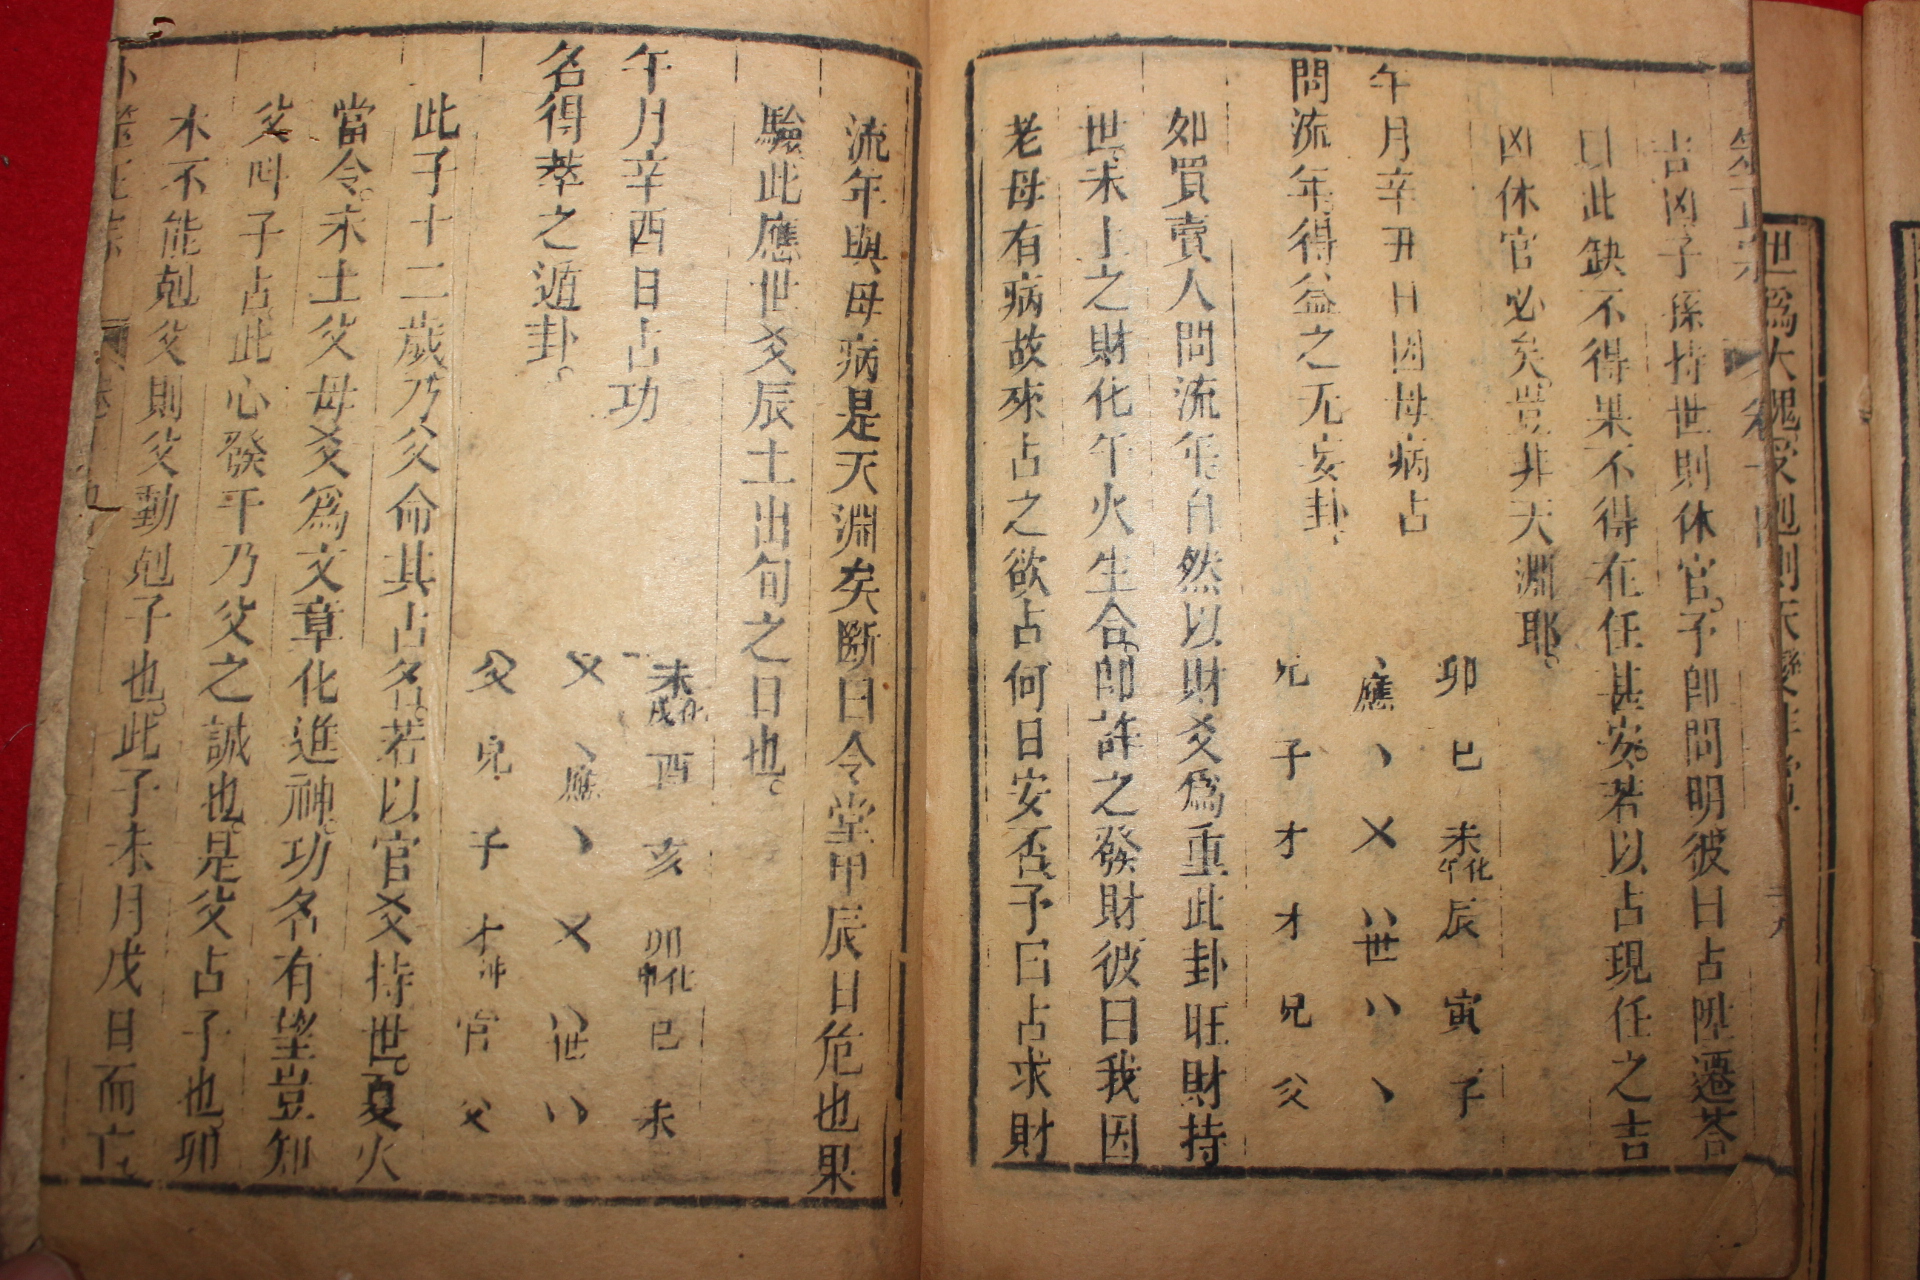 吉凶子孫持世則休官子卽問明彼曰占陞遷答
以此缺不得果不得在任甚安若以占現任之吉
凶休官必矣豈非天淵耶
午月辛丑日因母病占
問流年得益之无妄卦
卯 巳 未化午 辰 寅 子
、應 、 乂 〃世 〃 、
兄 子 才 才 兄 父
如買賣人問流年自然以財爻爲重此卦旺財持
世未土之財化午火生合卽許之發財彼曰我因
老母有病故來占之欲占何日安否予曰占求財
流年與母病是天淵矣斷曰令堂甲辰日危也果
驗此應世爻辰土出旬之日也
午月辛酉日占功
名得萃之遁卦
未化戌 酉 亥 卯化申 巳 未
乂 、應 、 乂 〃世 〃
父 兄 子 才 官 父
此子十二歲乃父命其占名若以官爻持世夏火
當令未土父母爻爲文章化進神功名有望豈知
父叫子占此心發于乃父之誠也是父占子也卯
木不能剋父則父動剋子也此子未月戊日而亡